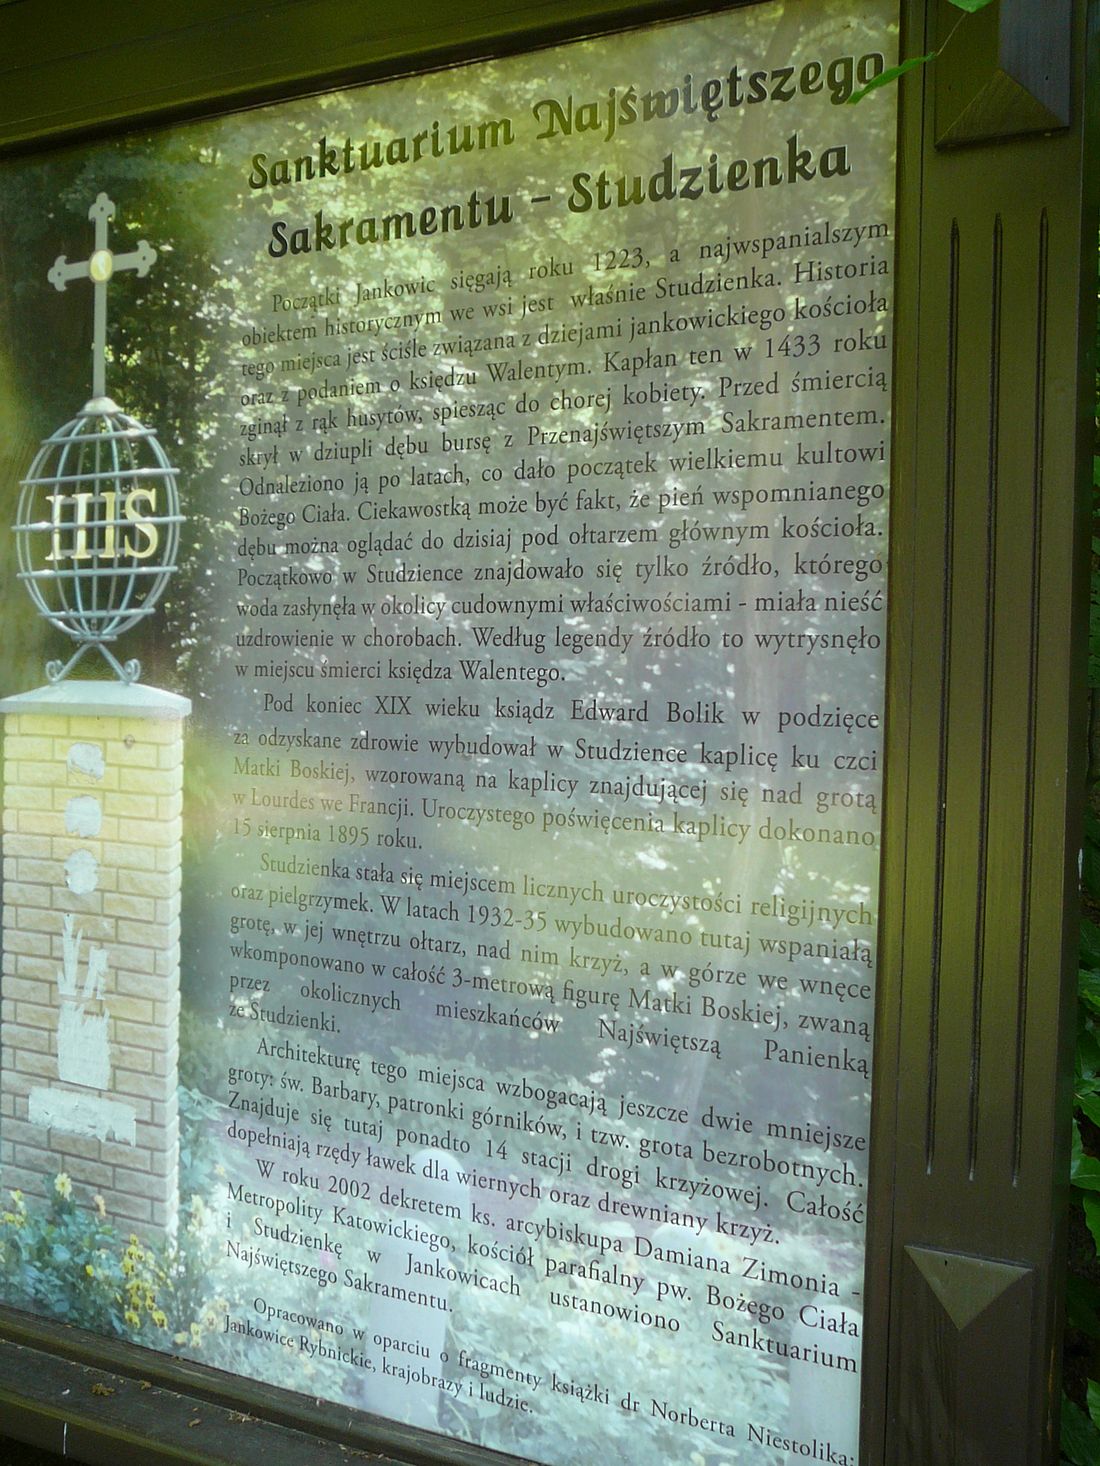 Sanktuarium Najświętszego
Sakramentu - Studzienka
Początki Jankowic sięgają roku 1223, a najwspanialszym
obiektem historycznym we wsi jest właśnie Studzienka. Historia
tego miejsca jest ściśle związana z dziejami jankowickiego kościoła
oraz z podaniem o księdzu Walentym. Kapłan ten w 1433 roku
zginął z rąk husytów, spiesząc do chorej kobiety. Przed śmiercią
skrył w dziupli dębu bursę z Przenajświętszym Sakramentem.
Odnaleziono ją po latach, co dało początek wielkiemu kultowi
Bożego Ciała. Ciekawostką może być fakt, że pień wspomnianego
dębu można oglądać do dzisiaj pod ołtarzem głównym kościoła.
Początkowo w Studzience znajdowało się tylko źródło, którego
woda zasłynęła w okolicy cudownymi właściwościami - miała nieść
uzdrowienie w chorobach. Według legendy źródło to wytrysnęło
w miejscu śmierci księdza Walentego.
Pod koniec XIX wieku ksiądz Edward Bolik w podzięce
za odzyskane zdrowie wybudował w Studzience kaplicę ku czci
Matki Boskiej, wzorowaną na kaplicy znajdującej się nad grotą
w Lourdes we Francji. Uroczystego poświęcenia kaplicy dokonano
15 sierpnia 1895 roku.
Studzienka stała się miejscem licznych uroczystości religijnych
oraz pielgrzymek. W latach 1932-35 wybudowano tutaj wspaniałą
grotę, w jej wnętrzu ołtarz, nad nim krzyż, a w górze we wnęce
wkomponowano w całość 3-metrową figurę Matki Boskiej, zwaną
przez okolicznych mieszkańców Najświętszą Panienką
ze Studzienki.
Architekturę tego miejsca wzbogacają jeszcze dwie mniejsze
groty: św. Barbary, patronki górników, i tzw. grota bezrobotnych.
Znajduje się tutaj ponadto 14 stacji drogi krzyżowej. Całość
dopełniają rzędy ławek dla wiernych oraz drewniany krzyż.
W roku 2002 dekretem ks. arcybiskupa Damiana Zimonia -
Metropolity Katowickiego, kościół parafialny pw. Bożego Ciała
i Studzienkę w Jankowicach ustanowiono Sanktuarium
Najświętszego Sakramentu.
Opracowano w oparciu o fragmenty książki dr Norberta Niestolika:
Jankowice Rybnickie, krajobrazy i ludzie.
IHS